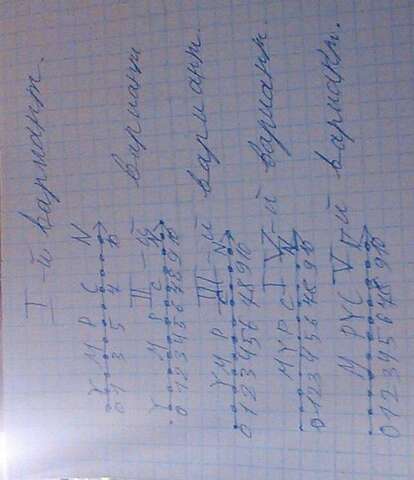 I-й вариант.
Y M P C N
0 1 3 5 7
II-й вариант
Y M P C N
0 1 2 3 4 5 6 7 8 9 10
III-й вариант.
Y M P C N
0 1 2 3 4 5 6 7 8 9 10
IV-й вариант.
M Y P C N
0 1 2 3 4 5 6 7 8 9 10
V-й вариант.
M P Y C N
0 1 2 3 4 5 6 7 8 9 10